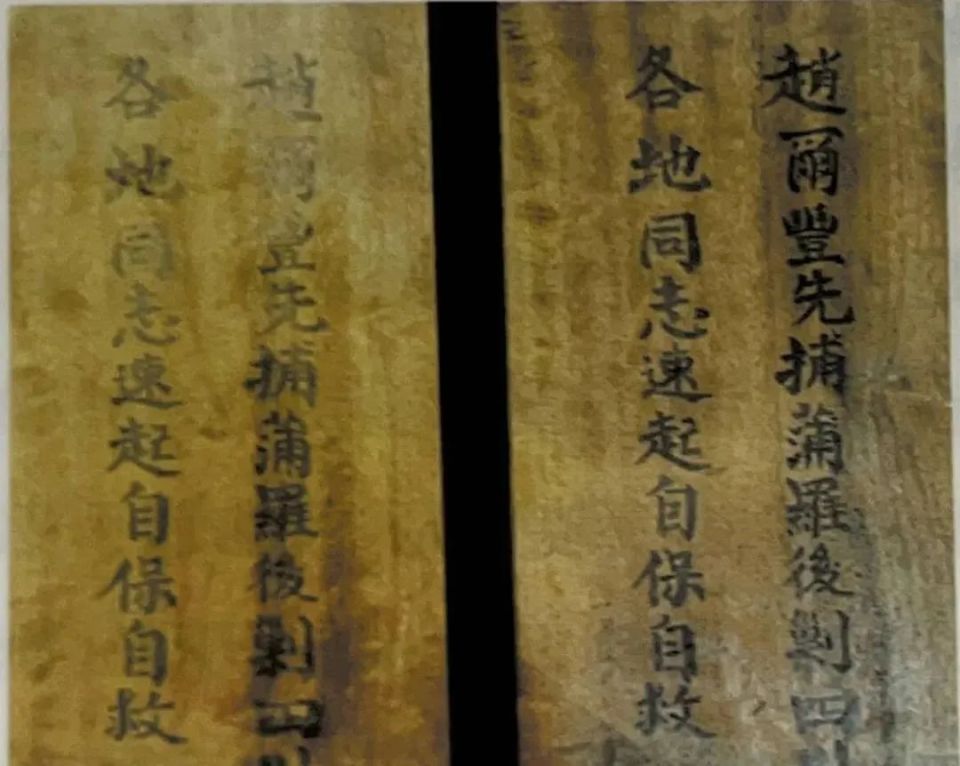 趙爾豐先捕蒲羅後剿四
各地同志速起自保自救
趙爾豐先捕蒲羅後剿四
各地同志速起自保自救